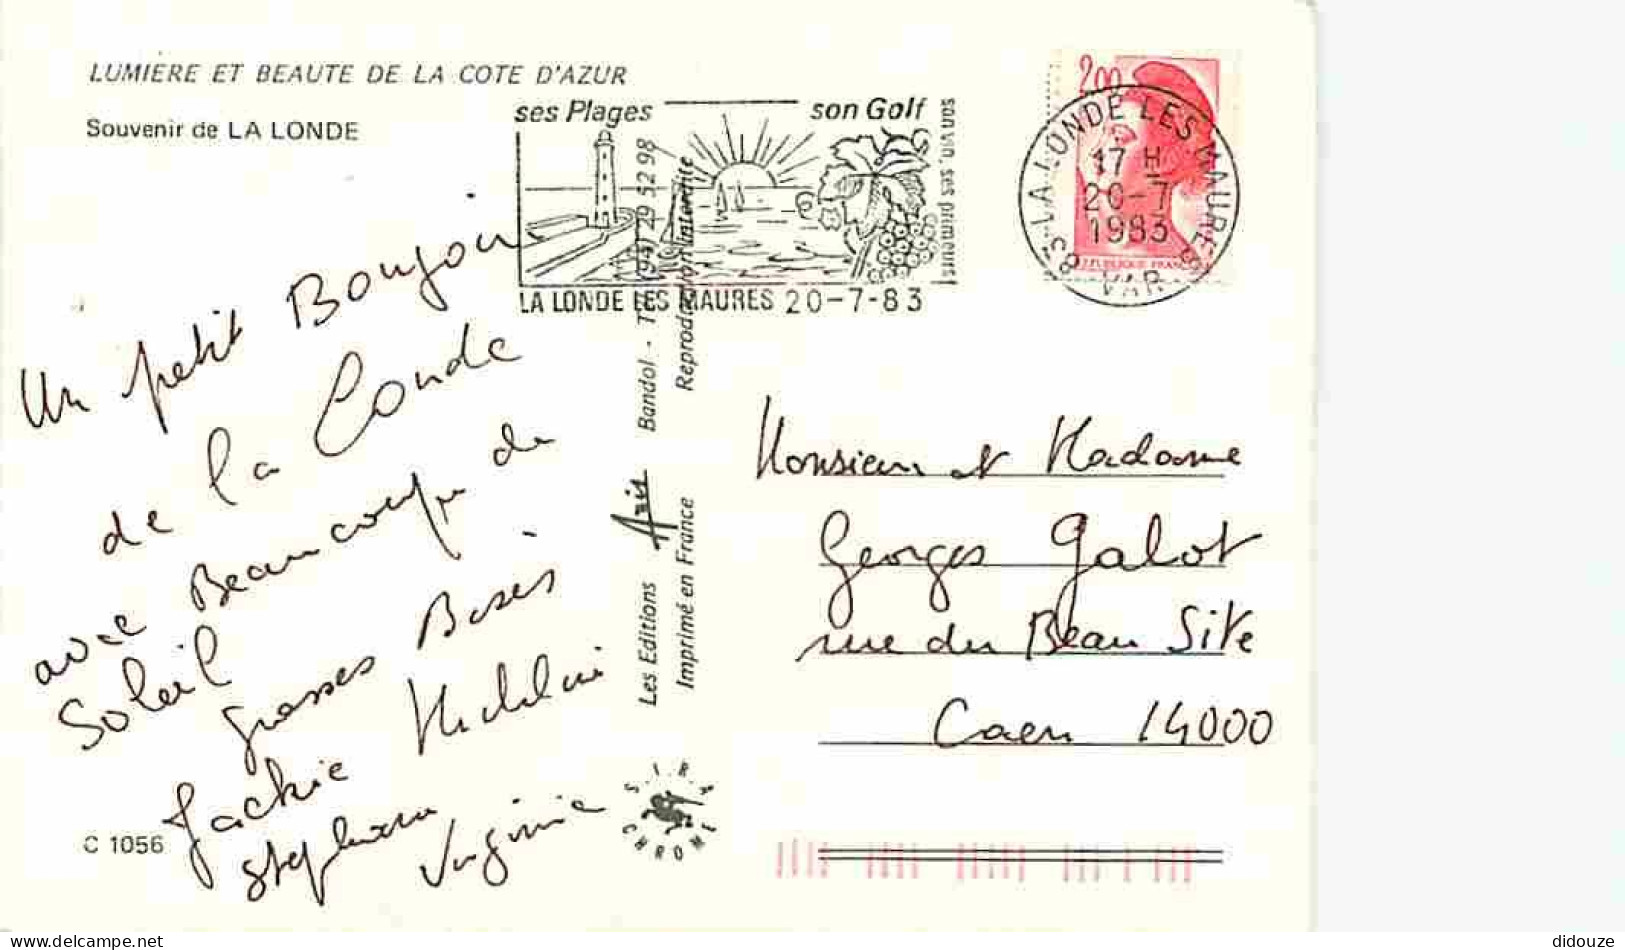 LUMIERE ET BEAUTE DE LA COTE D'AZUR
Souvenir de LA LONDE
ses Plages son Golf
son vin, ses primeurs!
LA LONDE LES MAURES 20-7-83
2,00
LA LONDE LES MAURES
17 H
20-7
1983
83 VAR
REPUBLIQUE FRANC
Un petit Bonjour
de la Londe
avec Beaucoup de
Soleil
grosses Bises
Jackie Micheline
Stéphane
Virginie
Les Editions Aris Bandol - Tél. (94) 29 52 98
Imprimé en France Reproduction interdite
S.I.R.A.
CHROME
Monsieur et Madame
Georges Galot
rue du Beau Site
Caen 14000
C 1056
delcampe.net
didouze